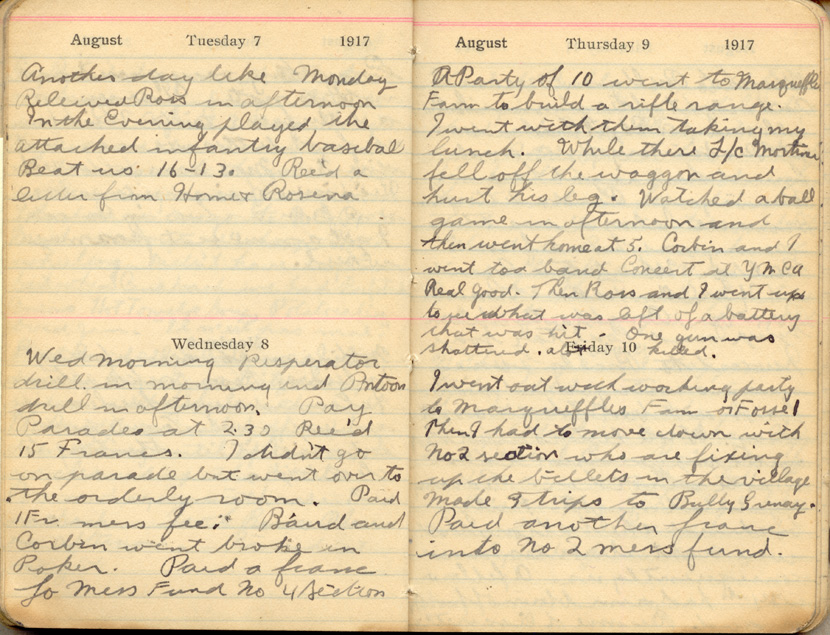 August Tuesday 7 1917
Another day like Monday
Relieved Ross in afternoon
In the Evening played the
attached infantry baseball
Beat us 16-13. Rec'd a
letter from Home & Rosina
Wednesday 8
Wed morning Resperator
drill in morning and Pontoon
drill in afternoon. Pay
Parades at 2.30 Rec'd
15 Francs. I didn't go
on parade but went over to
the orderly room. Paid
1 Fr. mess fee. Baird and
Corbin went broke in
Poker. Paid a franc
to Mess Fund No 4 Section
August Thursday 9 1917
A Party of 10 went to Marqueffles
Farm to build a rifle range.
I went with them taking my
lunch. While there L/c
fell off the waggon and
hurt his leg. Watched a ball
game in afternoon and
then went home at 5. Corbin and I
went to a band Concert at YMCA
Real good. Then Ross and I went up
to see what was left of a battery
that was hit. One gun was
shattered. killed.
Friday 10
I went out with working party
to Marqueffles Farm or Fosse 1
Then I had to move down with
No 2 section who are fixing
up the billets in the village
Made 9 trips to Bully Grenay.
Paid another franc
into No 2 mess fund.